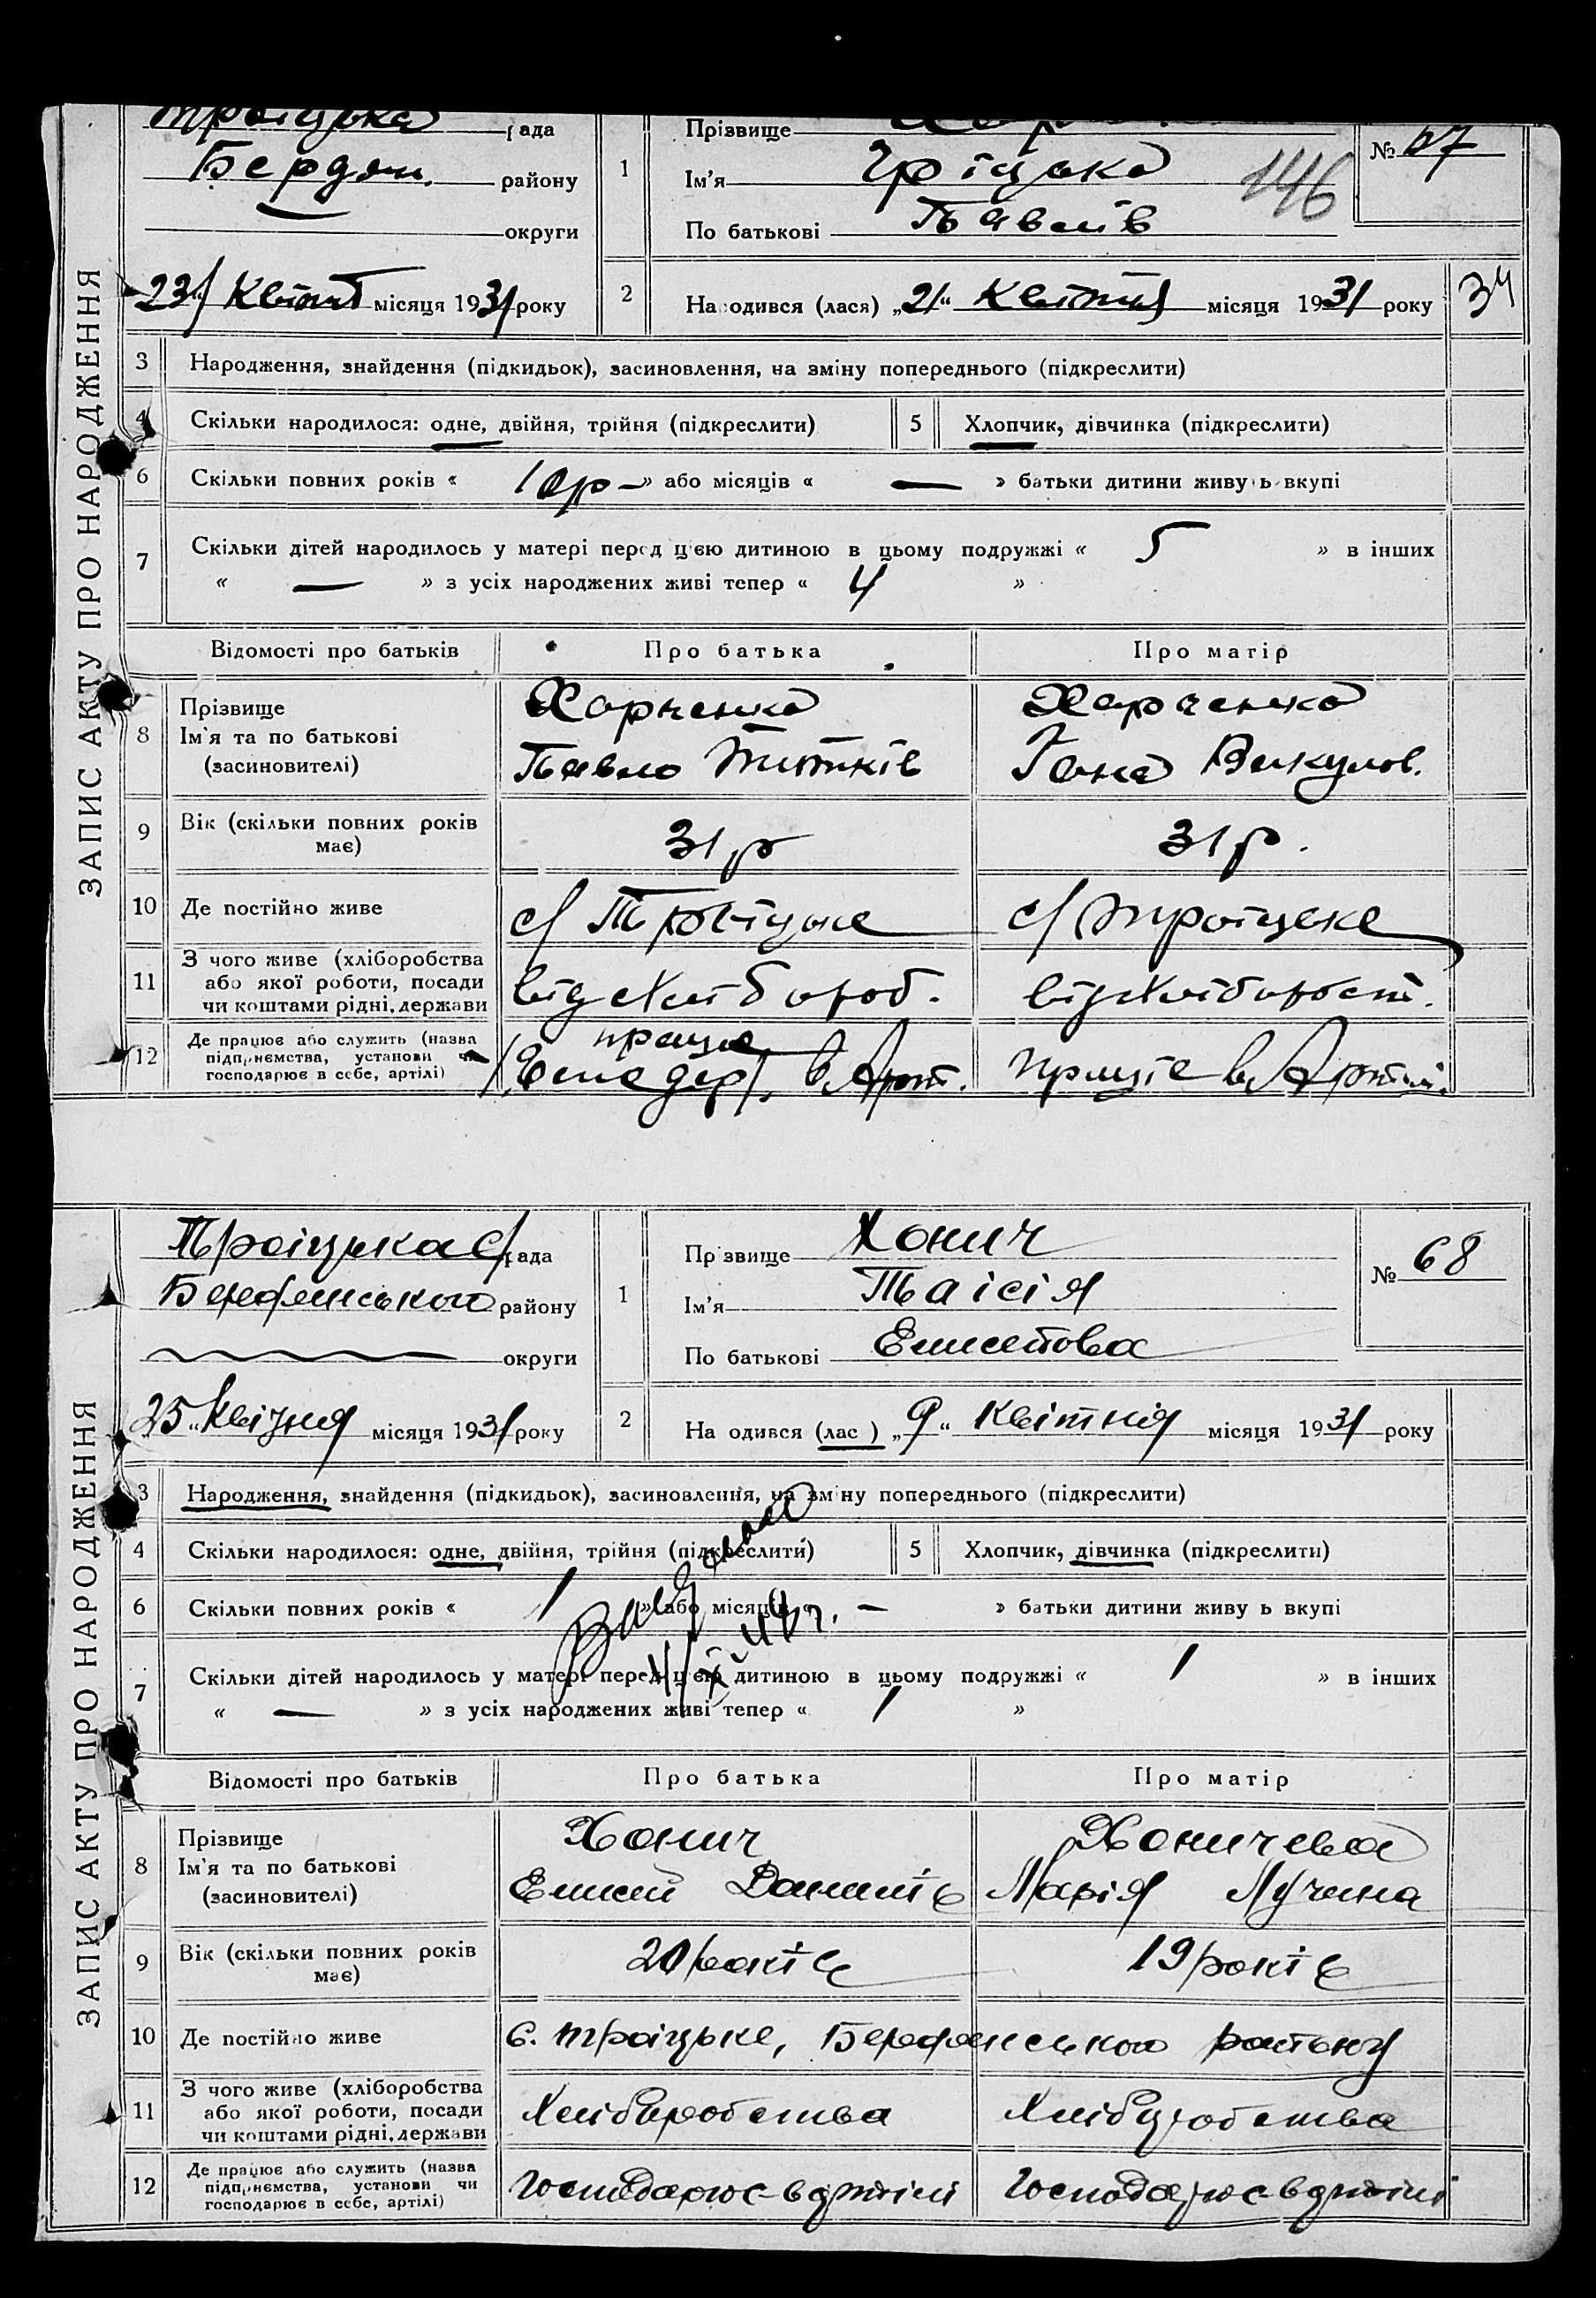 ЗАПИС АКТУ ПРО НАРОДЖЕННЯ
Троїцька рада
Бердян. району
округи
1
Прізвище
Ім'я Гріцько
По батькові Павлів
№ 67
146
23 Квітня місяця 1931 року
2
Народився (лася) „21“ Квітня місяця 1931 року
34
3 Народження, знайдення (підкидьок), засиновлення, на зміну попереднього (підкреслити)
4 Скільки народилося: одне, двійня, трійня (підкреслити)
5 Хлопчик, дівчинка (підкреслити)
6 Скільки повних років « 10 р — » або місяців « — » батьки дитини живуть вкупі
7 Скільки дітей народилось у матері перед цією дитиною в цьому подружжі « 5 » в інших
« — » з усіх народжених живі тепер « 4 »
Відомості про батьків Про батька Про матір
8 Прізвище Харченко Харченко
Ім'я та по батькові Павло Титків Ганна Викулов.
(засиновителі)
9 Вік (скільки повних років 31 р 31 р.
має)
10 Де постійно живе с/ Троїцьке с/ Троїцьке
11 З чого живе (хліборобства
або якої роботи, посади від Хлібороб. від Хліборобст.
чи коштами рідні, держави
12 Де працює або служить (назва працює
підприємства, установи чи в Арт. працює в Артілі.
господарює в себе, артілі)
ЗАПИС АКТУ ПРО НАРОДЖЕННЯ
Троіцька с/рада
Бердянського району
округи
1
Прізвище Хонич
Ім'я Таісія
По батькові Елисейова
№ 68
25 „Квітня місяця 1931 року
2
Народився (лас ) „9“ Квітня місяця 1931 року
3 Народження, знайдення (підкидьок), засиновлення, на зміну попереднього (підкреслити)
4 Скільки народилося: одне, двійня, трійня (підкреслити)
5 Хлопчик, дівчинка (підкреслити)
6 Скільки повних років « 1 » або місяців « — » батьки дитини живуть вкупі
7 Скільки дітей народилось у матері перед цією дитиною в цьому подружжі « 1 » в інших
« — » з усіх народжених живі тепер « 1 »
Відомості про батьків Про батька Про матір
8 Прізвище Хонич Хоничева
Ім'я та по батькові Елисей Данилів Марія Лучина
(засиновителі)
9 Вік (скільки повних років 20 років 19 років
має)
10 Де постійно живе с. Троіцьке, Бердянського району
11 З чого живе (хліборобства
або якої роботи, посади Хліборобства Хліборобства
чи коштами рідні, держави
12 Де працює або служить (назва
підприємства, установи чи Господарює в артілі Господарює в артілі
господарює в себе, артілі)